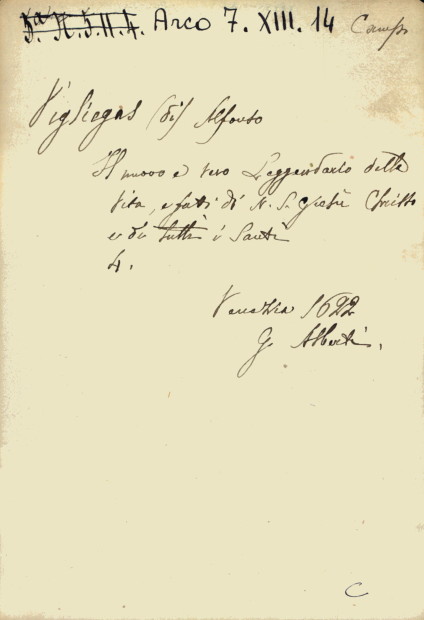 Arco 7. XIII. 14 Camp
Vigliegas (di) Alfonso
Il nuovo e vero Leggendario della
Vita, e fatti di N. S. Giesù Christo
e di tutti i Santi
4.
Venezia 1622
G. Alberti.
C